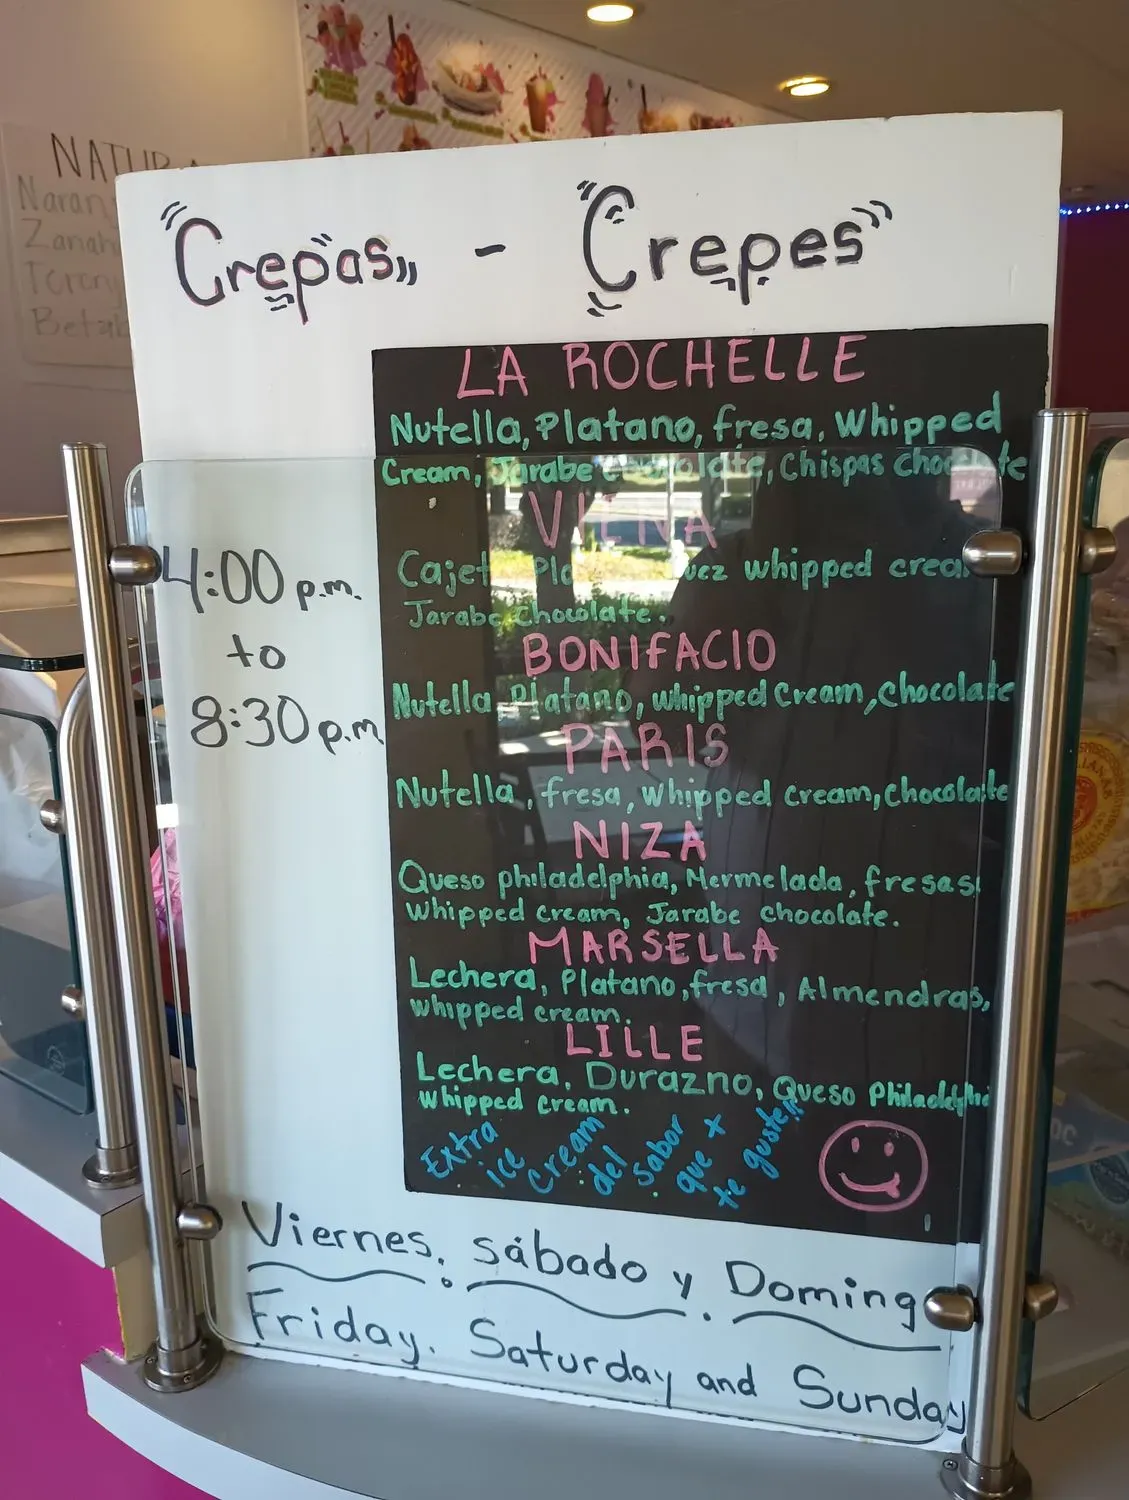 Crepas - Crepes
LA ROCHELLE
Nutella, Platano, fresa, Whipped
Cream, Jarabe chocolate, Chispas chocolate
VIENA
Cajet Pla uez whipped crea
Jarabe chocolate.
BONIFACIO
Nutella Platano, whipped Cream, Chocolate
PARIS
Nutella, fresa, whipped cream, chocolate
NIZA
Queso philadelphia, Mermelada, fresas
whipped cream, Jarabe chocolate.
MARSELLA
Lechera, Platano, fresa, Almendras,
whipped cream.
LILLE
Lechera, Durazno, Queso Philadelphia
whipped cream.
Extra ice cream del sabor que + te guste!!
4:00 p.m.
to
8:30 p.m.
Viernes, sábado y Doming
Friday, Saturday and Sunday
NATURA
Naran
Zanah
Toronj
Betab